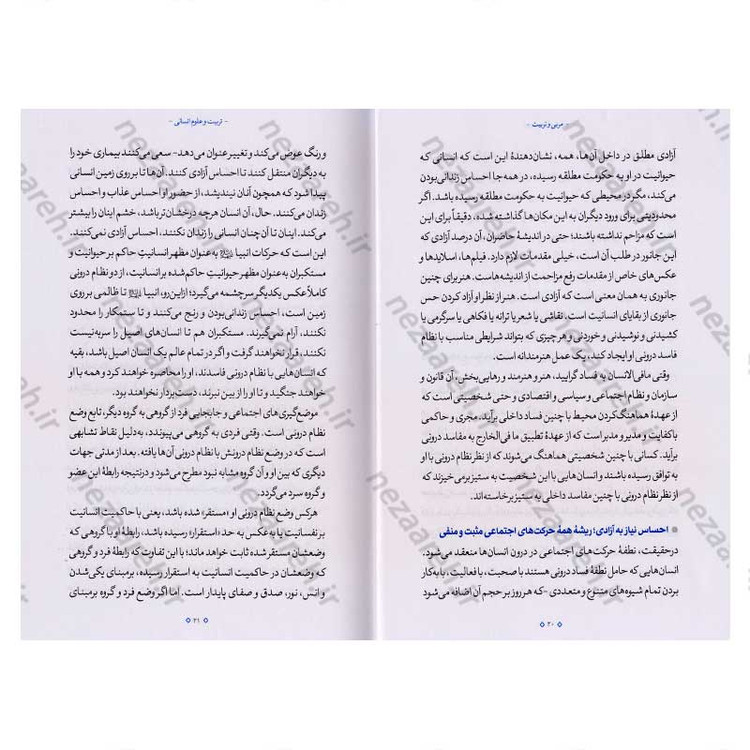 - مربی و تربیت -
آزادی مطلق در داخل آن‌ها، همه، نشان‌دهندهٔ این است که انسانی که
حیوانیت در او به حکومت مطلقه رسیده، در همه‌جا احساس زندانی‌بودن
می‌کند، مگر در محیطی که حیوانیت به حکومت مطلقه رسیده باشد.
محدودیتی برای ورود دیگران به این مکان‌ها گذاشته شده، دقیقاً برای این
است که مزاحم نداشته باشند؛ حتی در اندیشهٔ حاضران، آن درصد آزادی که
این جانور در طلب آن است، خیلی مقدمات لازم دارد. فیلم‌ها، اسلایدها و
عکس‌های خاص از مقدمات رفع مزاحمت از اندیشه‌هاست. هنر برای چنین
جانوری به همان معنی است که آزادی است. هنر از نظر او آزاد کردن حس
جانوری از بقایای انسانیت است. نقاشی یا شعر یا ترانه یا فکاهی یا سرگرمی یا
کشیدنی و نوشیدنی و خوردنی و هر چیزی که بتواند شرایطی مناسب با نظام
فاسد درونی او ایجاد کند، یک عمل هنرمندانه است.
وقتی مافی‌الانسان به فساد گرایید، هنر و هنرمند و رهایی‌بخش، آن قانون و
سازمان و نظام اجتماعی و سیاسی و اقتصادی و حتی شخصیتی است که
از عهدهٔ هماهنگ‌کردن محیط با چنین فساد داخلی برآید. مجری و حاکمی
باکفایت و مدیر و مدبر است که از عهدهٔ تطبیق ما فی‌الخارج به مفاسد درونی
برآید. کسانی با چنین شخصیتی هماهنگ می‌شوند که از نظر نظام درونی با او
به توافق رسیده باشند و انسان‌هایی با این شخصیت به ستیز برمی‌خیزند که
از نظر نظام درونی با چنین مفاسد داخلی به ستیز برخاسته‌اند.
احساس نیاز به آزادی؛ ریشهٔ همهٔ حرکت‌های اجتماعی مثبت و منفی
درحقیقت، نطفهٔ حرکت‌های اجتماعی در درون انسان‌ها منعقد می‌شود.
انسان‌هایی که حامل نطفهٔ فساد درونی هستند با صحبت، با فعالیت، با به‌کار
بردن تمام شیوه‌های متنوع و متعددی -که هر روز بر حجم آن اضافه می‌شود
۲۰
- تربیت و علوم انسانی -
و رنگ عوض می‌کند و تغییر عنوان می‌دهد- سعی می‌کنند بیماری خود را
به دیگران منتقل کنند تا احساس آزادی کنند. آن‌ها تا بر روی زمین انسانی
پیدا شود که همچون آنان نیندیشد، از حضور او احساس عذاب و احساس
زندان می‌کنند. حال، آن انسان هرچه درخشان‌تر باشد، خشم اینان را بیشتر
می‌کند. اینان تا آن‌چنان انسانی را زندان نکنند، احساس آزادی نمی‌کنند.
این است که حرکات انبیا به‌عنوان مظهر انسانیتِ حاکم بر حیوانیت و
مستکبران به‌عنوان مظهر حیوانیتِ حاکم‌شده بر انسانیت، از دو نظام درونی
کاملاً عکس یکدیگر سرچشمه می‌گیرد؛ ازاین‌رو، انبیا تا ظالمی بر روی
زمین است، احساس زندانی‌بودن و رنج می‌کنند و تا ستمکار را محدود
نکنند، آرام نمی‌گیرند. مستکبران هم تا انسان‌های اصیل را سربه‌نیست
نکنند، قرار نخواهند گرفت و اگر در تمام عالم یک انسان اصیل باشد، بقیه
که انسان‌هایی با نظام درونی فاسدند، او را محاصره خواهند کرد و همه با او
خواهند جنگید و تا او را از بین نبرند، دست‌بردار نخواهند بود.
موضع‌گیری‌های اجتماعی و جابجایی فرد از گروهی به گروه دیگر، تابع وضع
نظام درونی است. وقتی فردی به گروهی می‌پیوندد، به‌دلیل نقاط تشابهی
است که در وضع نظام درونش با نظام درونی آن‌ها یافته. بعد از مدتی جهات
دیگری که بین او و آن گروه مشابه نبود مطرح می‌شود و درنتیجه رابطهٔ این عضو
و گروه سرد می‌گردد.
هرکس وضع نظام درونی او «مستقر» شده باشد، یعنی با حاکمیت انسانیت
بر نفسانیت یا به‌عکس به حد «استقرار» رسیده باشد، رابطهٔ او با گروهی که
وضعشان مستقر شده ثابت خواهد ماند؛ با این تفاوت که رابطهٔ فرد و گروهی
که وضعشان در حاکمیت انسانیت به استقرار رسیده، برمبنای یکی‌شدن
و انس، نور، صدق و صفای پایدار است. اما اگر وضع فرد و گروه برمبنای
۲۱
nezaareh.ir